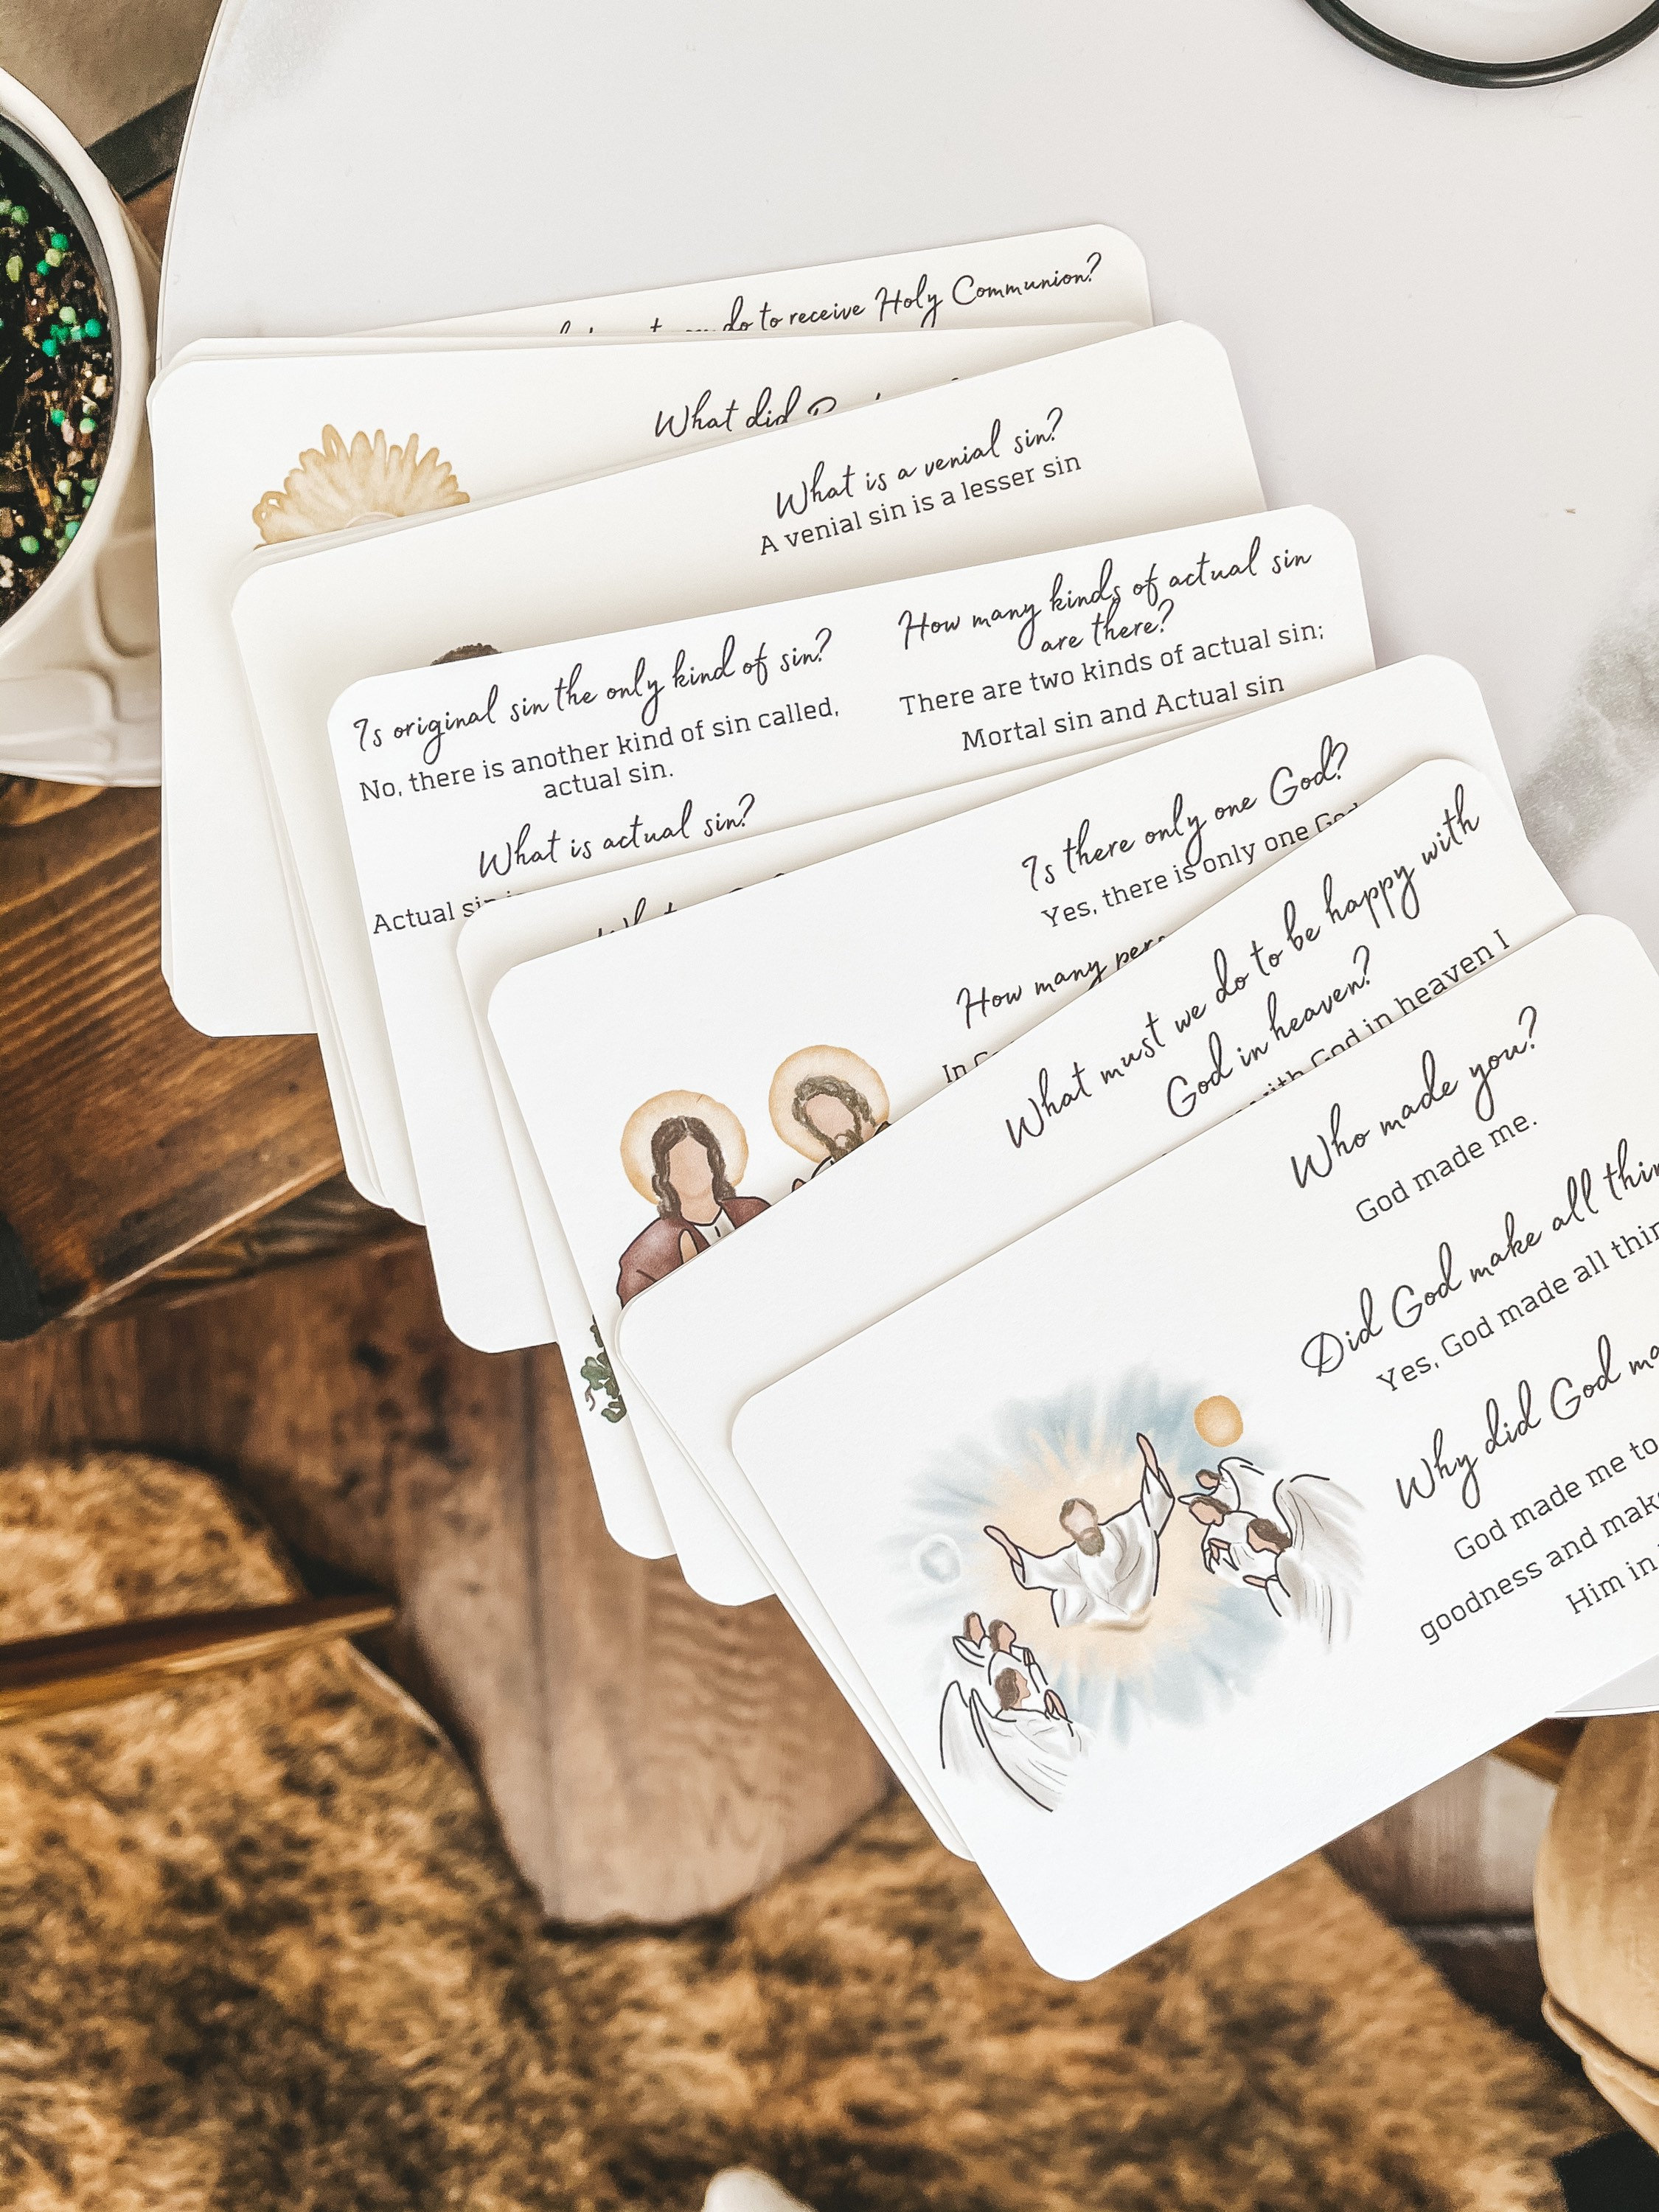 do to receive Holy Communion?
What did
What is a venial sin?
A venial sin is a lesser sin
Is original sin the only kind of sin?
No, there is another kind of sin called,
actual sin.
What is actual sin?
Actual sin
How many kinds of actual sin
are there?
There are two kinds of actual sin;
Mortal sin and Actual sin
What
Is there only one God?
Yes, there is only one God
How many
In
What must we do to be happy with
God in heaven?
with God in heaven I
Who made you?
God made me.
Did God make all
Yes, God made all
Why did God
God made me to
goodness and
Him in